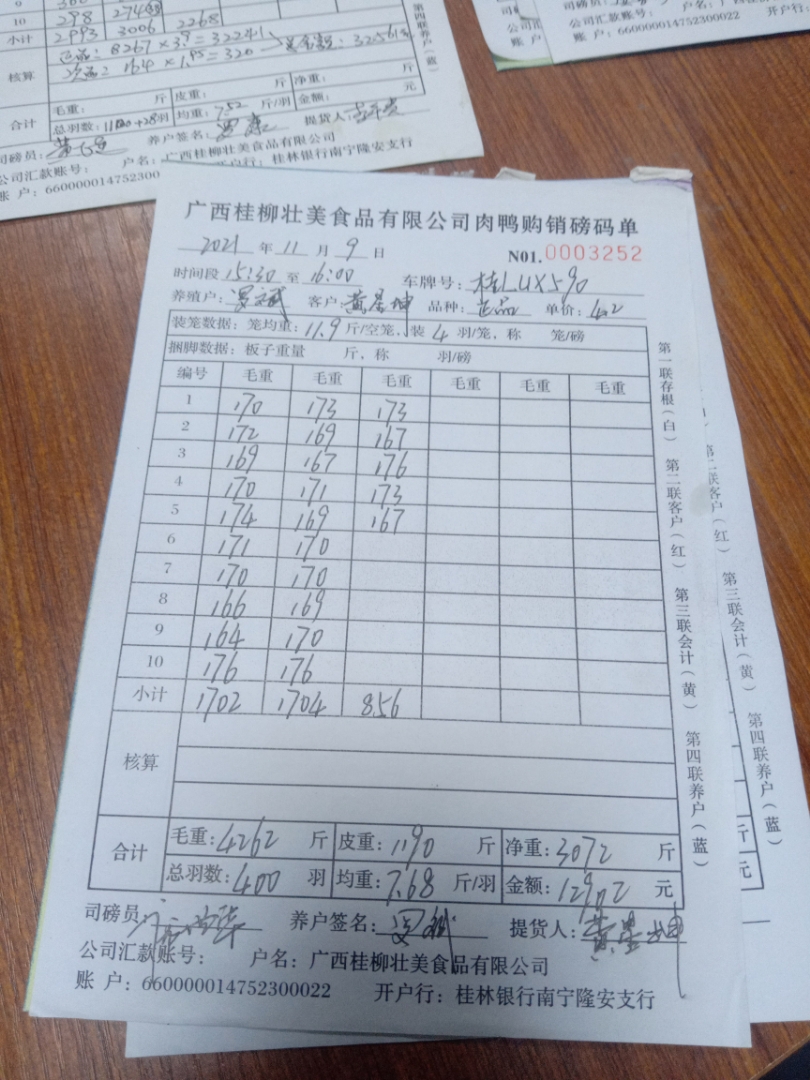 10 298 274 2268
小计 2993 3006 2268
正品: 8267×3.9=32241
次品: 164×1.95=320 总金额: 32561元
核算
毛重: 斤 皮重: 斤 净重: 斤
合计
总羽数: 羽 均重: 7.52 斤/羽 金额: 元
司磅员: 养户签名: 提货人:
公司汇款账号: 户名: 广西桂柳壮美食品有限公司
账 户: 66000001475230 开户行: 桂林银行南宁隆安支行
账 户: 660000014752300022 开户行:
广西桂柳壮美食品有限公司肉鸭购销磅码单
2021 年 11 月 9 日 N01.0003252
时间段 15:30 至 16:00 车牌号: 桂LUX590
养殖户: 罗斌 客户: 黄星坤 品种: 正品 单价: 4.2
装笼数据: 笼均重: 11.9 斤/空笼, 装 4 羽/笼, 称 笼/磅
捆脚数据: 板子重量 斤, 称 羽/磅
编号 毛重 毛重 毛重 毛重 毛重 毛重
1 170 173 173
2 172 169 167
3 169 167 176
4 170 171 173
5 174 169 167
6 171 170
7 170 170
8 166 169
9 164 170
10 176 176
小计 1702 1704 856
核算
合计 毛重: 4262 斤 皮重: 1190 斤 净重: 3072 斤
总羽数: 400 羽 均重: 7.68 斤/羽 金额: 12902 元
司磅员: 养户签名: 罗斌 提货人: 黄星坤
公司汇款账号: 户名: 广西桂柳壮美食品有限公司
账 户: 660000014752300022 开户行: 桂林银行南宁隆安支行
第一联存根(白) 第二联客户(红) 第三联会计(黄) 第四联养户(蓝)
第二联客户(红) 第三联会计(黄) 第四联养户(蓝)
斤
元